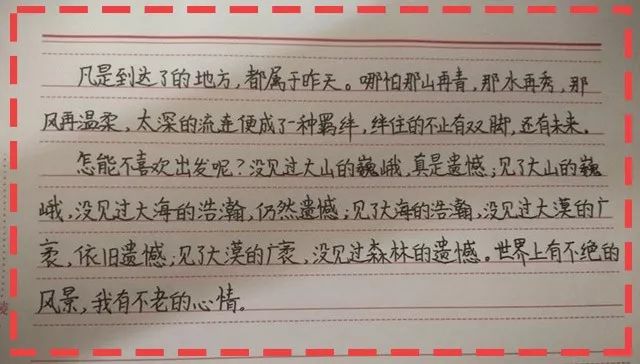 凡是到达了的地方，都属于昨天。哪怕那山再青，那水再秀，那
风再温柔，太深的流连便成了一种羁绊，绊住的不止有双脚，还有未来。
怎能不喜欢出发呢？没见过大山的巍峨，真是遗憾；见了大山的巍
峨，没见过大海的浩瀚，仍然遗憾；见了大海的浩瀚，没见过大漠的广
袤，依旧遗憾；见了大漠的广袤，没见过森林的遗憾。世界上有不绝的
风景，我有不老的心情。